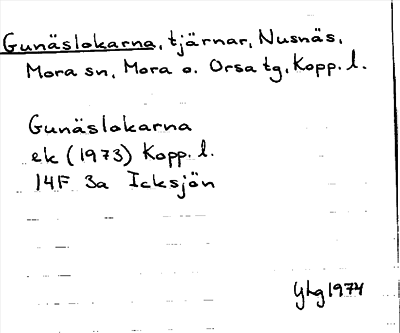 Gunäslokarna, tjärnar, Nusnäs,
Mora sn, Mora o. Orsa tg, Kopp. l.
Gunäslokarna
ek (1973) Kopp. l.
14F 3a Icksjön
YHg 1974